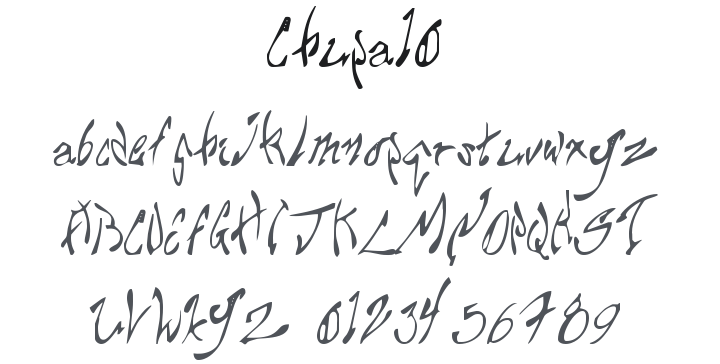 Chupa10
abcdefghijklmnopqrstuvwxyz
ABCDEFGHIJKLMNOPQRST
UVWXYZ 0123456789